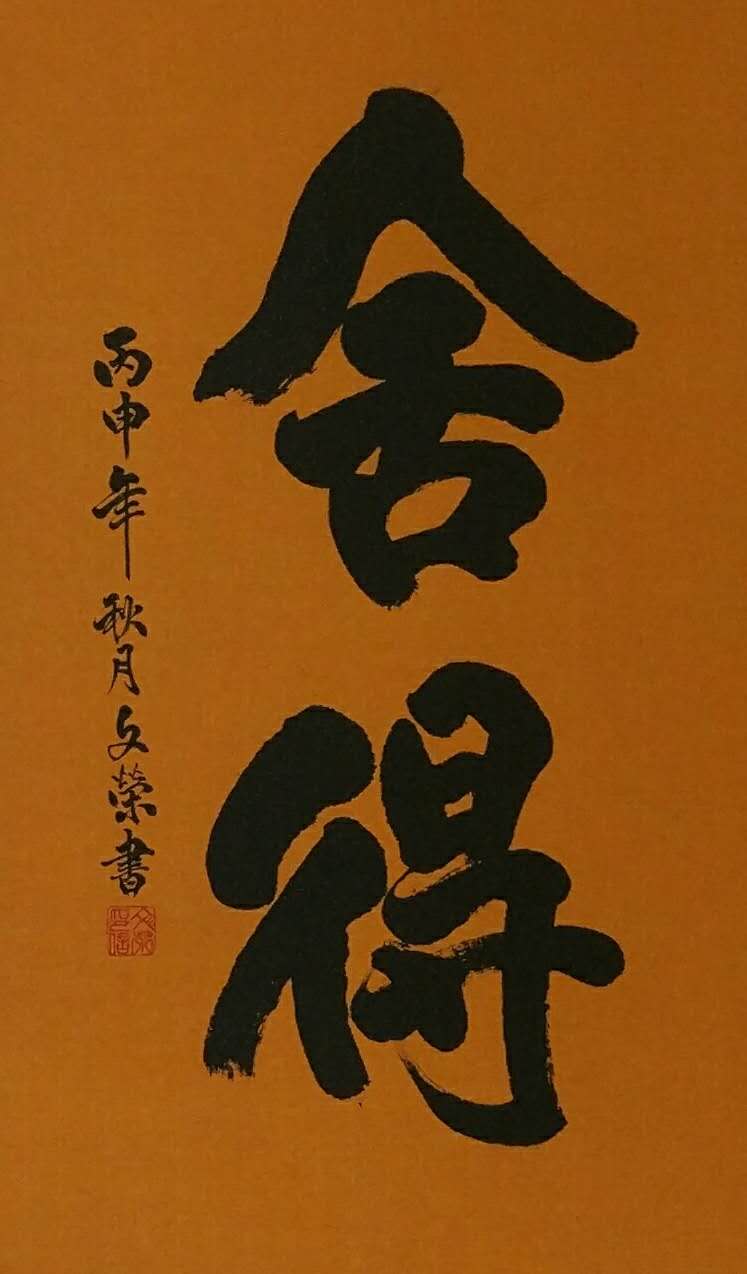 舍得
丙申年秋月文榮書